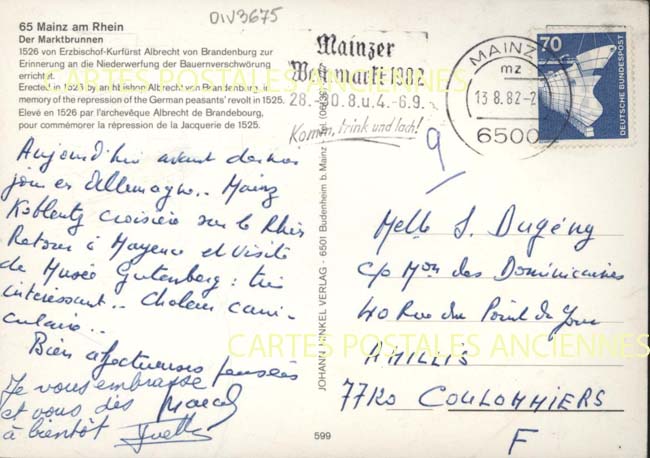 DIV3675
65 Mainz am Rhein
Der Marktbrunnen
1526 von Erzbischof-Kurfürst Albrecht von Brandenburg zur
Erinnerung an die Niederwerfung der Bauernverschwörung
errichtet.
Erected in 1526 by archbishop Albrecht von Brandenburg, in
memory of the repression of the German peasants' revolt in 1525.
Elevé en 1526 par l'archevêque Albrecht de Brandebourg,
pour commémorer la répression de la Jacquerie de 1525.
CARTES POSTALES ANCIENNES
Mainzer
Weinmarkt 1982
28.-30.8.u.4.-6.9.
Komm, trink und lach!
MAINZ
mz
13.8.82-2
6500
70
DEUTSCHE BUNDESPOST
9
Aujourd'hui avant dernier
jour en Allemagne.. Mainz
Koblentz croisière sur le Rhin
Retour à Mayence et visite
de Musée Gutenberg : très
intéressant.. Chaleur cani-
culaire..
Bien affectueuses pensées
Je vous embrasse
et vous dis Marcel
à bientôt Yvette
JOHANN HINKEL VERLAG - 6501 Budenheim b. Mainz
599
Melle S. Dugény
c/o Mon des Dominicaines
40 Rue du Point du Jour
AMILLIS
77120 COULOMMIERS
F
CARTES POSTALES ANCIENNES